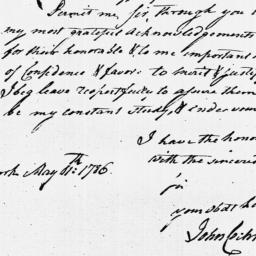 Permit me, Sir, through you t
my most grateful Acknowledgements
for their honorable & to me important
of Confidence & favor to merit & justify
I beg leave respectfully to assure them
be my constant study, & endeavour
I have the honor
with the sincerest
Sir
your obdt h
ork May 11th 1786
John Coch